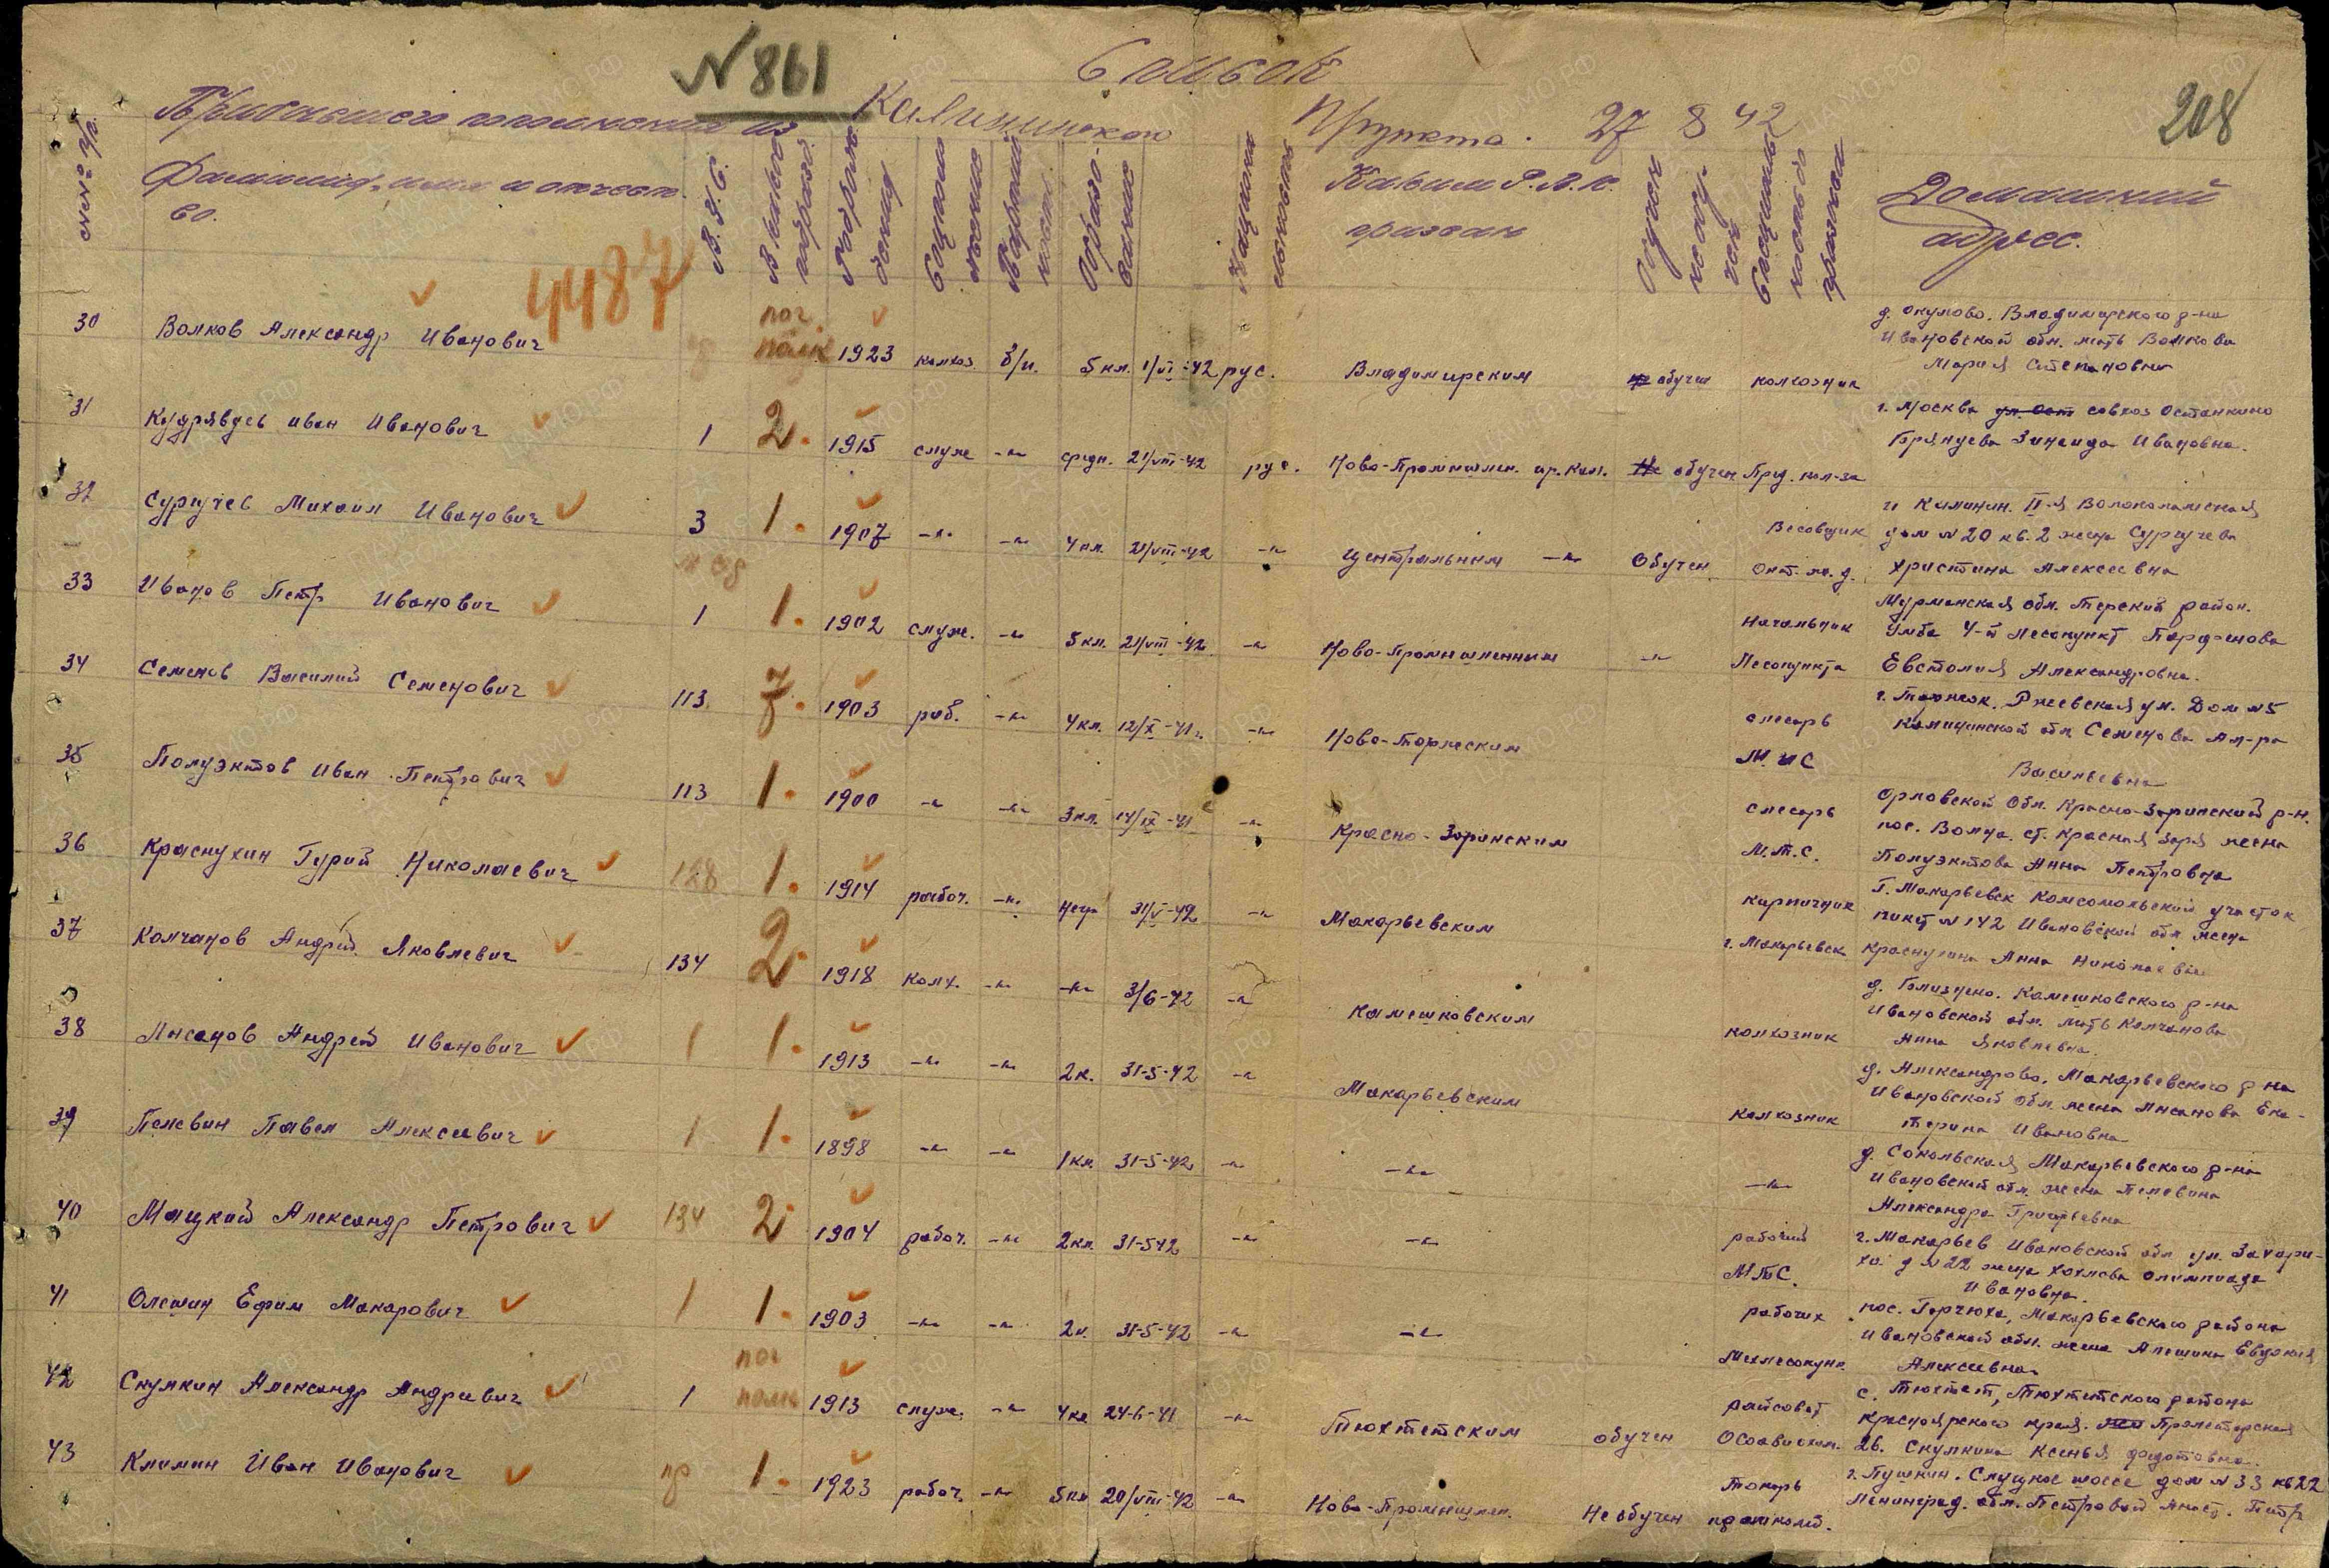 №861
Список
208
Прибывшего пополнения из Калининского П/пункта. 27 8 42
№№ п/п. Фамилия, имя и отчеств-во. В.У.С. Образование Каким Р.В.К. призван Домашний адрес.
4487
30 Волков Александр Иванович 1923 колхоз. б/п. 5 кл. 1/VI-42 рус. Владимирским обучен колхозник д. Окулово. Владимирского р-на
Ивановской обл. мать Волкова
Мария Степановна
31 Кудрявцев Иван Иванович 1 2. 1915 служ -"- средн. 21/VIII-42 рус. Ново-Промышлен. гр. Кал. Не обучен Пред. кол-за г. Москва ул. Ост совхоз Останкино
Брянцева Зинаида Ивановна.
32 Сургучев Михаил Иванович 3 1. 1907 -"- -"- 4 кл. 21/VIII-42 -"- Центральным -"- Обучен Весовщик
Окт. ж.д. г. Калинин. II-я Волоколамская
дом №20 кв.2 жена Сургучева
Христина Алексеевна
33 Иванов Петр Иванович 1 1. 1902 служ. -"- 5 кл. 21/VIII-42 -"- Ново-Промышленным -"- Начальник
Лесопункта Мурманская обл. Терский район.
Умба 4-й лесопункт Парфенова
Евстолия Александровна.
34 Семенов Василий Семенович 113 7. 1903 раб. -"- 4 кл. 12/X-41 г. -"- Ново-Торжским слесарь
М.Т.С г. Торжок. Ржевская ул. Дом №5
Калининской обл. Семенова Ал-ра
Васильевна
35 Полуэктов Иван Петрович 113 1. 1900 -"- -"- 3 кл. 14/IX-41 -"- Красно-Зоринским слесарь
М.Т.С. Орловской Обл. Красно-Зоринский р-н.
пос. Волча. ст. Красная Заря жена
Полуэктова Анна Петровна
36 Краснухин Гурий Николаевич 128 1. 1914 рабоч. -"- негр 31/V-42 -"- Макарьевским кирпичник
г. Макарьевск Г. Макарьевск Комсомольский участок
пикет №142 Ивановской обл жена
Краснухина Анна Николаевна
37 Колчанов Андрей Яковлевич 134 2. 1918 колх. -"- -"- 3/6-42 -"- Камешковским колхозник д. Близнено. Камешковского р-на
Ивановской обл. мать Колчанова
Анна Яковлевна
38 Лисанов Андрей Иванович 1 1. 1913 -"- -"- 2 к. 31-5-42 -"- Макарьевским колхозник д. Александрово. Макарьевского р-на
Ивановской обл. жена Лисанова Ека-
терина Ивановна
39 Пелевин Павел Алексеевич 1 1. 1898 -"- -"- 1 кл. 31-5-42 -"- -"- -"- д. Сокольская Макарьевского р-на
Ивановской обл. жена Пелевина
Александра Григорьевна
40 Мацкий Александр Петрович 134 2. 1904 рабоч. -"- 2 кл. 31-5-42 -"- -"- рабочий
МТС. г. Макарьев Ивановской обл ул. Захари-
ха д №22 жена Хохлова Олимпиада
Ивановна.
41 Олешин Ефим Макарович 1 1. 1903 -"- -"- 2 к. 31-5-42 -"- -"- рабочих
Мехлесопунк. пос. Горчюха, Макарьевского района
Ивановской обл. жена Алешина Евдокия
Алексеевна.
42 Скулкин Александр Андреевич 1 1913 служ. -"- 4 кл 24-6-41 -"- Тюхтетским обучен райсовет
Осоавиахим. с. Тюхтет, Тюхтетского района
Красноярского края. Пролетарская
26. Скулкина Ксенья Федотовна.
43 Климин Иван Иванович 1. 1923 рабоч. -"- 5 кл 20/VIII-42 -"- Ново-Промышлен. Не обучен токарь г. Пушкин. Слуцкое шоссе дом №33 кв22
Ленинград. обл. Петровой Анаст. Петр